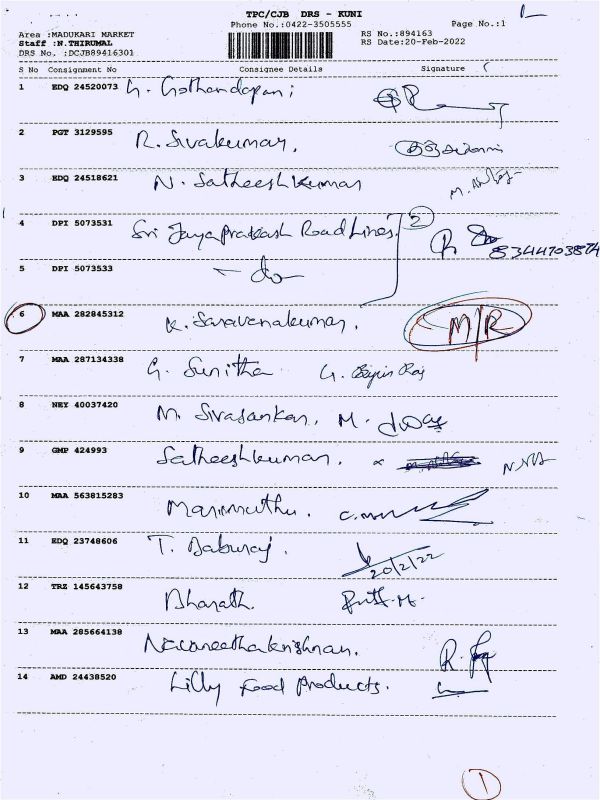 TPC/CJB DRS - KUNI
Phone No.:0422-3505555 Page No.:1
Area :MADUKARI MARKET RS No.:894163
Staff :N.THIRUMAL RS Date:20-Feb-2022
DRS No. :DCJB89416301
S No Consignment No Consignee Details Signature
1 EDQ 24520073 G. Gothandapani
2 PGT 3129595 R. Sivakumar.
3 EDQ 24518621 N. Satheesh Kumar
4 DPI 5073531 Sri Jayaprakash Road Lines. 2
8344703874
5 DPI 5073533 - do -
6 MAA 282845312 K. Saravanakumar. M/R
7 MAA 287134338 G. Sunitha G. Raj
8 NEY 40037420 M. Sivasankar. M.
9 GMP 424993 Satheeshkumar.
10 MAA 563815283 Marimuthu.
11 EDQ 23748606 T. Baburaj. 20/2/22
12 TRZ 145643758 Bharath.
13 MAA 285664138 Navaneethakrishnan.
14 AMD 24438520 Lilly Food Products.
1